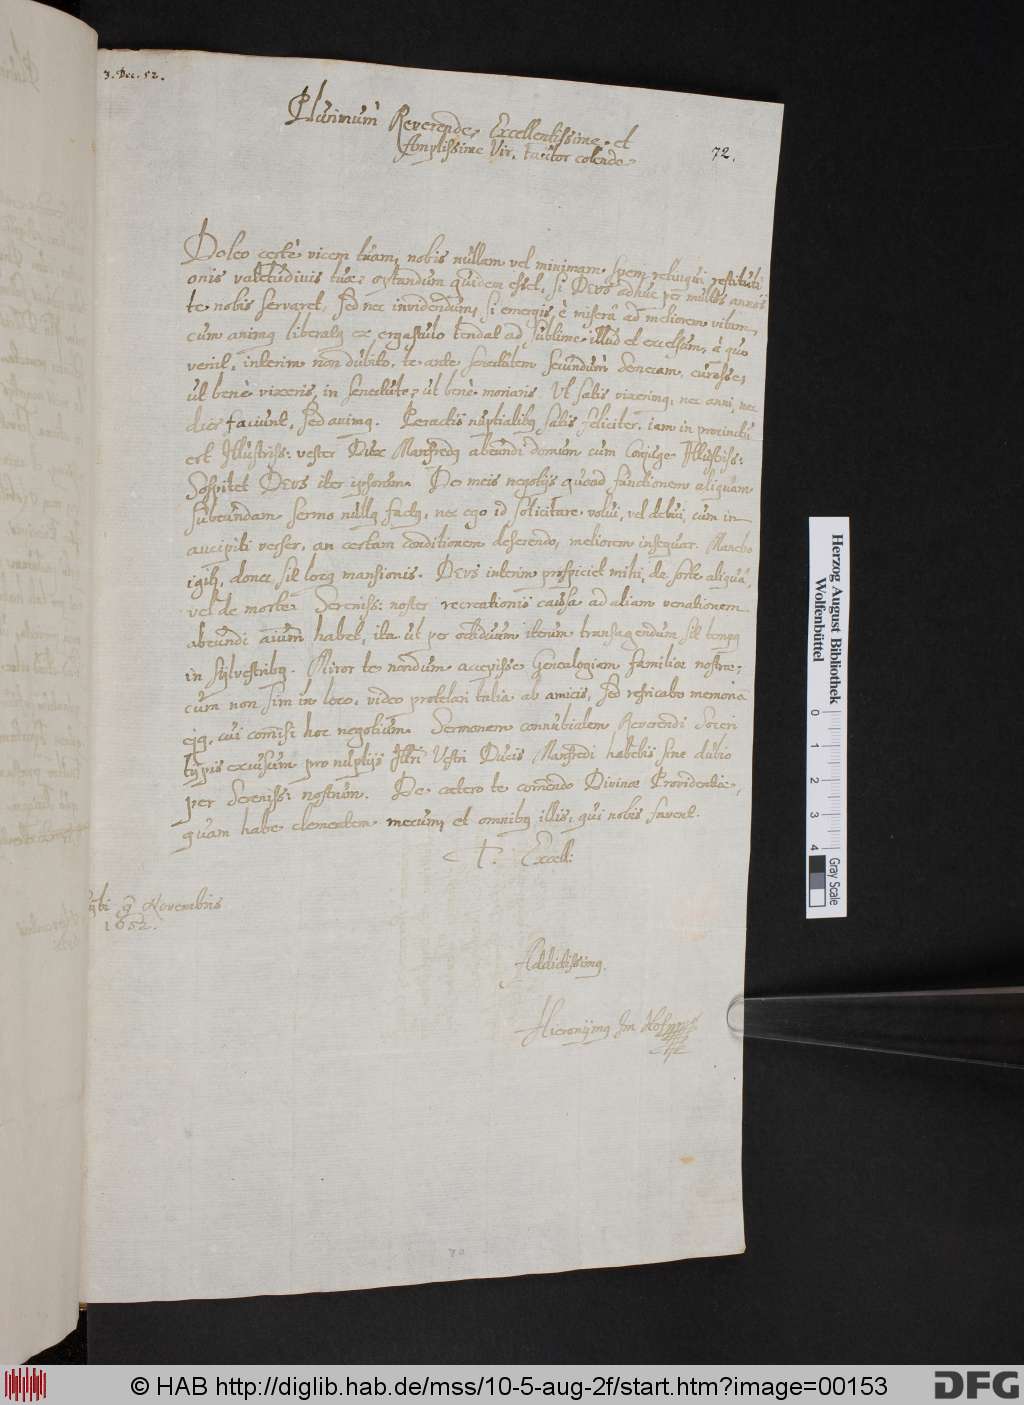 3. Dec. 52.
Plurimùm Reverende, Excellentissime, et
Amplissime Vir, Fautor colende
72.
Doleo certè vicem tuam, nobis nullam vel minimam spem relinqui restituti
onis valetudinis tuæ; optandum quidem esset, si DEUS adhuc per multos annos
te nobis servaret, sed nec invidendum, si emergis è misera ad meliorem vitam,
cum animq liberatq ex ergastulo tendat ad sublime illud et excelsum, à quo
venit, interim non dubito, te ante senectutem secundum Senecam, curasse,
ut benè vixeris, in senectute, ut benè moriaris. Ut satis vixerimq, nec anni, nec
dies faciunt, sed animq. Peractis nuptialibq satis feliciter, iam in procinctu
est Illustriss: vester Dux Manfredq abeundi domum cum Conjuge Illustriss:
Sospitet DEUS iter ipsorum. De meis negotijs quoad functionem aliquam
subeundam sermo nullq factq, nec ego id solicitare volui, vel debui, cum in
ancipiti verser, an certam conditionem deserendo, meliorem insequar. Manebo
igitq, donec sit locq mansionis. DEUS interim prospiciet mihi, de sorte aliqua,
vel de morte. Sereniss: noster recreationis causa ad aliam venationem
abeundi aium habet, ita ut per octiduum iterum transigendum sit tempq
in sylvestribq. Miror te nondum accepisse Genealogiam familiæ nostræ;
cum non sim in loco, video protelari talia ab amicis, sed refricabo memoria
ejq, cui comisi hoc negotium. Sermonem connubialem Reverendi Soceri
typis excusum pro nuptijs Illri Vestri Ducis Manfredi habebis sine dubio
per Sereniss: nostrum. De cætero te comendo Divinæ Providentiæ,
quam habe clementem mecum, et omnibq illis, qui nobis favent.
T. Excell:
Novembris
1652.
Addictissimq
Hieronymq Im Hof
70
Herzog August Bibliothek
Wolfenbüttel
0 1 2 3 4
Gray Scale
© HAB http://diglib.hab.de/mss/10-5-aug-2f/start.htm?image=00153
DFG